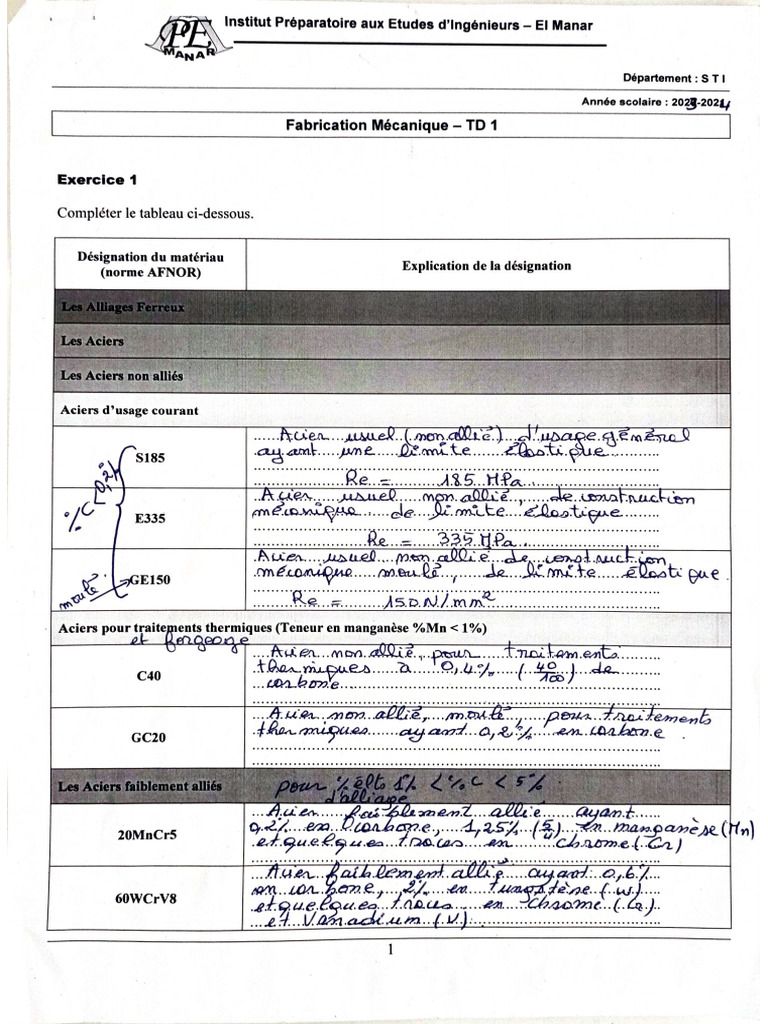 IPE
MANAR
Institut Préparatoire aux Etudes d'Ingénieurs – El Manar
Département : S T I
Année scolaire : 2023-2024
Fabrication Mécanique – TD 1
Exercice 1
Compléter le tableau ci-dessous.
Désignation du matériau
(norme AFNOR)
Explication de la désignation
Les Alliages Ferreux
Les Aciers
Les Aciers non alliés
Aciers d'usage courant
% C < 0,2%
S185
Acier usuel (non allié) d'usage général
ayant une limite élastique
Re = 185 MPa
E335
Acier usuel non allié, de construction
mécanique de limite élastique
Re = 335 MPa
moulé
GE150
Acier usuel non allié de construction
mécanique moulé, de limite élastique
Re = 150 N/mm²
Aciers pour traitements thermiques (Teneur en manganèse %Mn < 1%)
et forgeage
C40
Acier non allié pour traitements
thermiques à 0,4% (40/100) de
carbone
GC20
Acier non allié, moulé, pour traitements
thermiques ayant 0,2% en carbone
Les Aciers faiblement alliés
pour % élts 1% < % C < 5%
d'alliage
20MnCr5
Acier faiblement allié ayant
0,2% en Carbone, 1,25% (5/4) en manganèse (Mn)
et quelques traces en chrome (Cr)
60WCrV8
Acier faiblement allié ayant 0,6%
en carbone, 2% en tungstène (W)
et quelques traces en chrome (Cr)
et Vanadium (V)
1